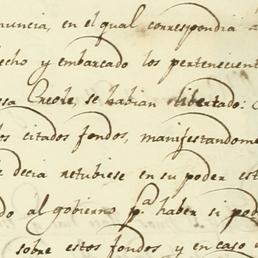 nuncia, en el qual corresponderia a
echo y embarcado los pertenecient
esa Creole, se habian libertado:
os citados fondos, manifestandome
e decia retubiese en su poder est
do al gobierno pª haber si pod
sobre estos fondos y en caso